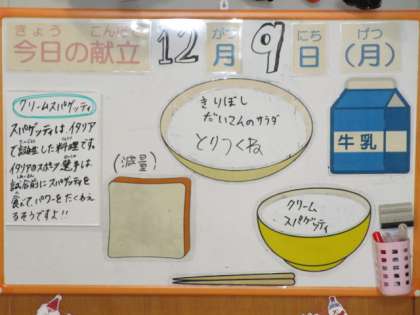 きょう こんだて がつ にち げつ
今日の献立 12月9日(月)
クリームスパゲッティ
スパゲッティは、イタリア
で誕生した料理です。
イタリアのスポーツ選手は
試合前にスパゲッティを
食べて、パワーをたくわえ
るそうですよ!!
きりぼし
だいこんのサラダ
とりつくね
牛乳
(減量)
クリーム
スパゲッティ